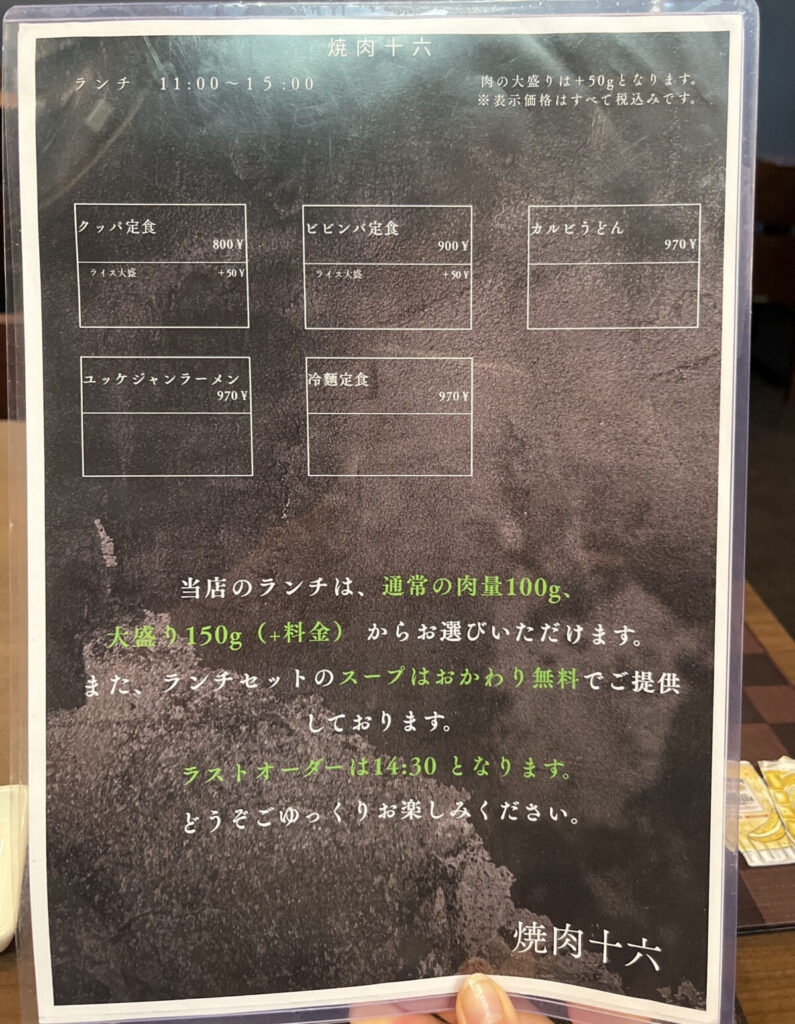 焼肉十六
ランチ 11:00〜15:00
肉の大盛りは+50gとなります。
※表示価格はすべて税込みです。
クッパ定食
800¥
ライス大盛 +50¥
ビビンバ定食
900¥
ライス大盛 +50¥
カルビうどん
970¥
ユッケジャンラーメン
970¥
冷麺定食
970¥
当店のランチは、通常の肉量100g、
大盛り150g（+料金）からお選びいただけます。
また、ランチセットのスープはおかわり無料でご提供
しております。
ラストオーダーは14:30 となります。
どうぞごゆっくりお楽しみください。
焼肉十六